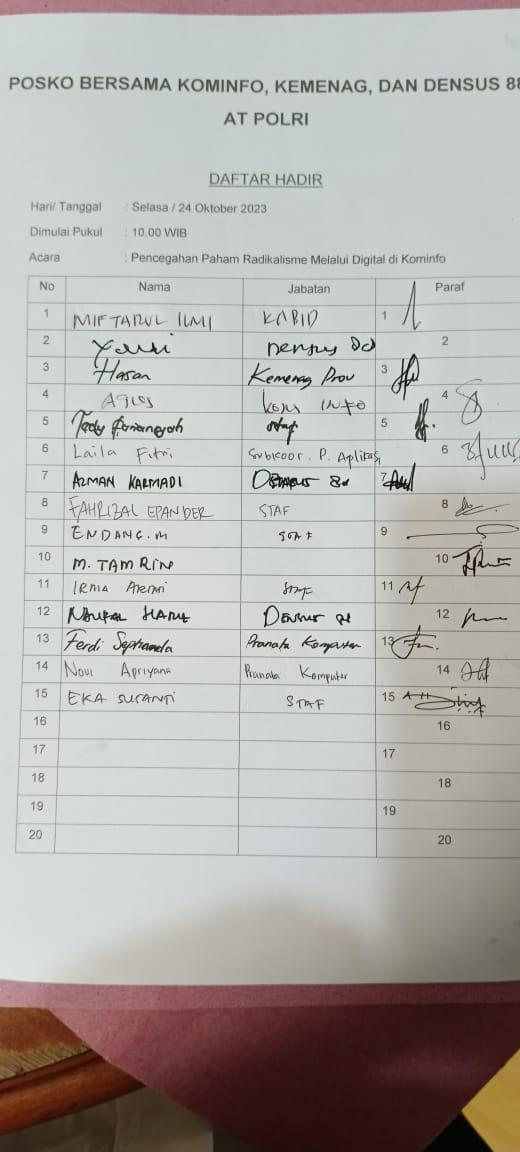 POSKO BERSAMA KOMINFO, KEMENAG, DAN DENSUS 88
AT POLRI
DAFTAR HADIR
Hari/ Tanggal : Selasa / 24 Oktober 2023
Dimulai Pukul : 10.00 WIB
Acara : Pencegahan Paham Radikalisme Melalui Digital di Kominfo
No Nama Jabatan Paraf
1 MIFTAHUL ILMI KABID 1
2 Densus 2
3 Hasan Kemenag Prov 3
4 Agus INFO 4
5 Tedy staf 5
6 Laila Fitri Subkoor. P. Aplikasi 6
7 AZMAN KARMADI 7
8 FAHRIZAL EPANDER STAF 8
9 ENDANG.M STAF 9
10 M. TAMRIN 10
11 IRMA Staf 11
12 DENSUS 12
13 Ferdi Pranata Komputer 13
14 Novi Apriyana Pranata Komputer 14
15 EKA SUSANTI STAF 15
16 16
17 17
18 18
19 19
20 20